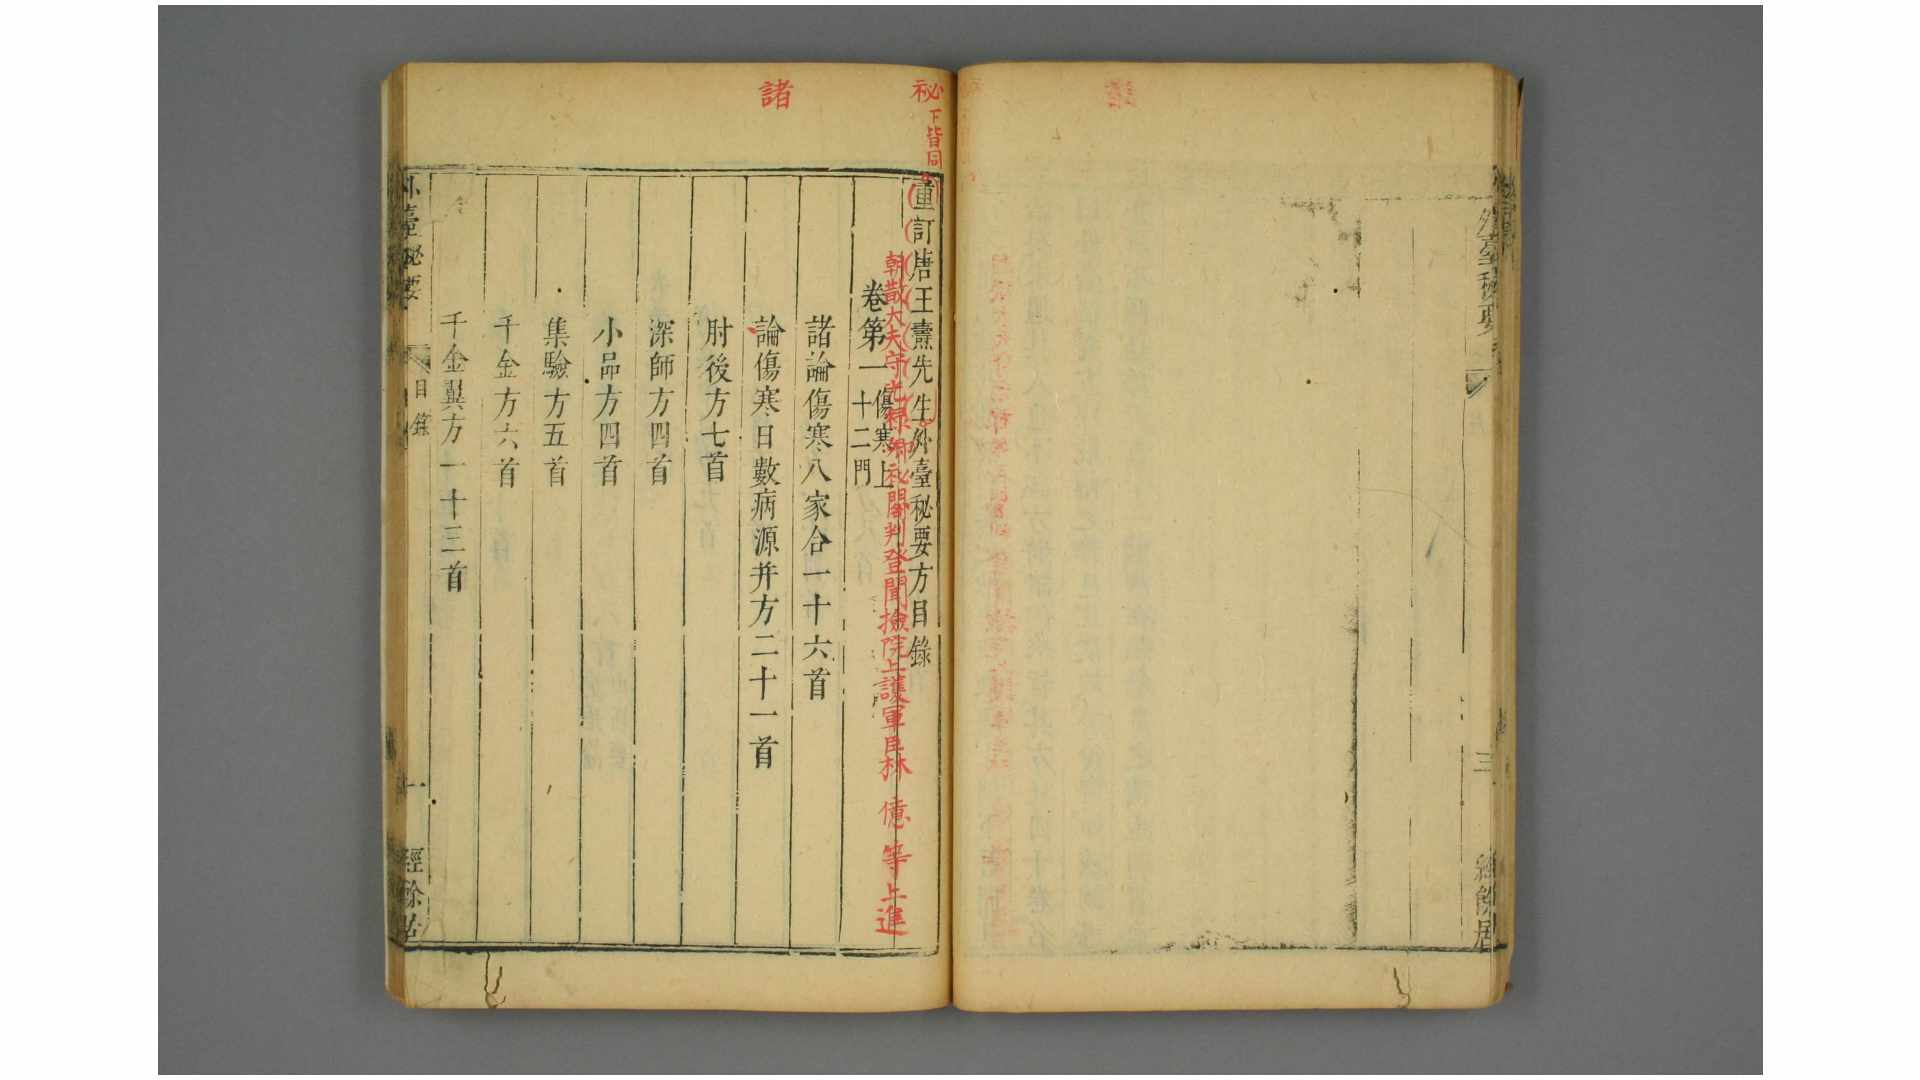 外臺秘要
三
經餘居
祕
下皆同
諸
重訂唐王燾先生外臺秘要方目錄
朝散大夫守光祿卿祕閣判登聞檢院上護軍臣林億等上進
卷第一
傷寒上
十二門
諸論傷寒八家合一十六首
論傷寒日數病源并方二十一首
肘後方七首
深師方四首
小品方四首
集驗方五首
千金方六首
千金翼方一十三首
外臺秘要
目錄
一
經餘居